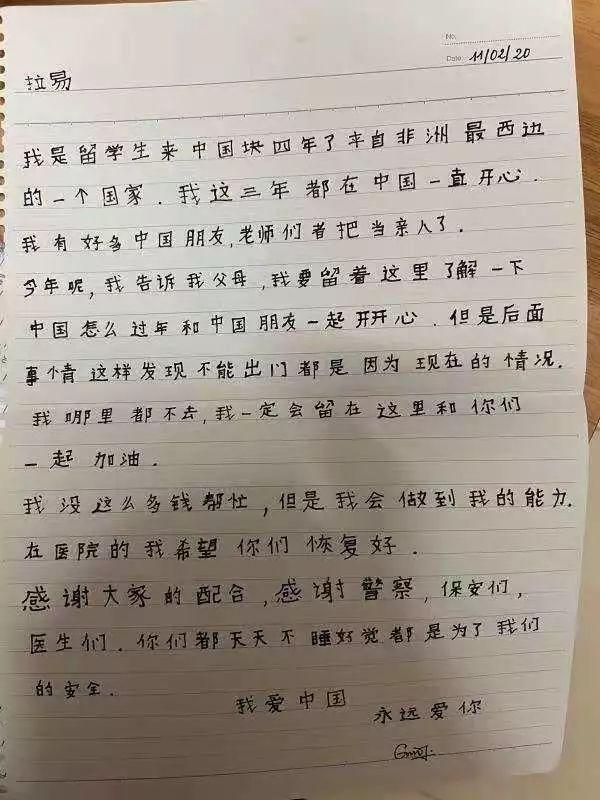 No.
Date 11/02/20
拉易
我是留学生来中国块四年了来自非洲最西边
的一个国家.我这三年都在中国一直开心.
我有好多中国朋友,老师们者把当亲人了.
今年呢,我告诉我父母,我要留着这里了解一下
中国怎么过年和中国朋友一起开开心.但是后面
事情这样发现不能出门都是因为现在的情况.
我哪里都不去,我一定会留在这里和你们
一起加油.
我没这么多钱帮忙,但是我会做到我的能力.
在医院的我希望你们恢复好.
感谢大家的配合,感谢警察,保安们,
医生们.你们都天天不睡好觉都是为了我们
的安全.
我爱中国
永远爱你